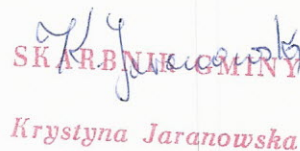 K. Jaranowska
SKARBNIK GMINY
Krystyna Jaranowska